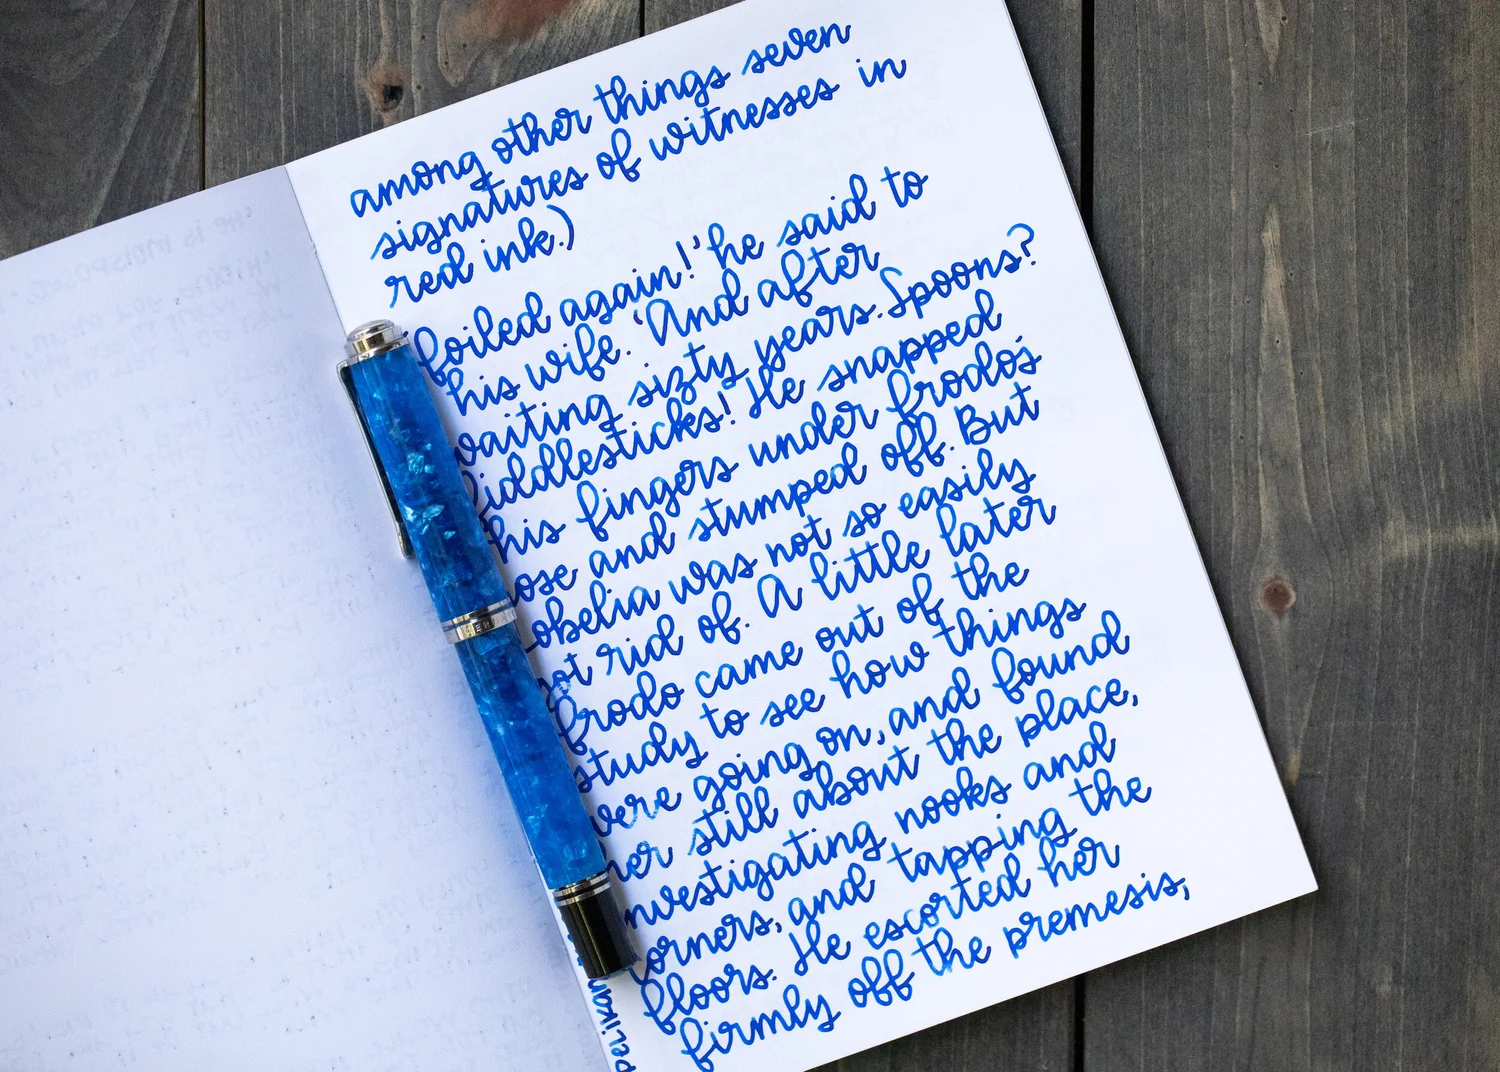 among other things seven
signatures of witnesses in
red ink.)
'Foiled again!' he said to
his wife. 'And after
waiting sixty years. Spoons?
Fiddlesticks! He snapped
his fingers under Frodo's
nose and stumped off. But
Lobelia was not so easily
got rid of. A little later
Frodo came out of the
study to see how things
were going on, and found
her still about the place,
investigating nooks and
corners, and tapping the
floors. He escorted her
firmly off the premesis,
Pelikan